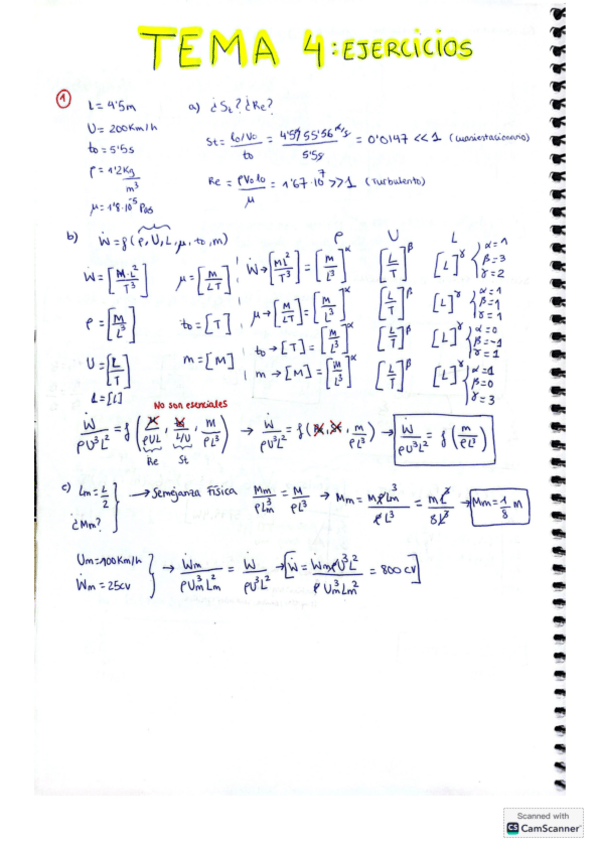 TEMA 4: EJERCICIOS
① L = 4'5m a) ¿St? ¿Re?
U = 200 Km/h
St = (lo/Vo)/to = (4'5/55'56 m/s)/5'5s = 0'0147 << 1 (cuasiestacionario)
to = 5'5s
ρ = 1'2 Kg/m³
Re = ρVolo/μ = 1'67·10⁷ >> 1 (Turbulento)
μ = 1'8·10⁻⁵ Pas
b) Ẇ = f(ρ, U, L, μ, to, m) ρ U L
Ẇ = [M·L²/T³] μ = [M/LT] Ẇ → [ML²/T³] = [M/L³]^α [L/T]^β [L]^γ { α=1 β=3 γ=2
ρ = [M/L³] to = [T] μ → [M/LT] = [M/L³]^α [L/T]^β [L]^γ { α=1 β=1 γ=1
U = [L/T] m = [M] to → [T] = [M/L³]^α [L/T]^β [L]^γ { α=0 β=-1 γ=1
L = [L] m → [M] = [M/L³]^α [L/T]^β [L]^γ { α=1 β=0 γ=3
No son esenciales
Ẇ/ρU³L² = f(μ/ρUL, to/L/U, m/ρL³) → Ẇ/ρU³L² = f(Re, St, m/ρL³) → Ẇ/ρU³L² = f(m/ρL³)
Re St
c) Lm = L/2 } → Semejanza Física Mm/ρLm³ = M/ρL³ → Mm = MρLm³/ρL³ = mL³/8L³ → Mm = 1/8 m
¿Mm?
Um = 100 Km/h
Ẇm = 25cv } → Ẇm/ρUm³Lm² = Ẇ/ρU³L² → [Ẇ = ẆmρU³L²/ρUm³Lm² = 800 CV]
Scanned with
CS CamScanner